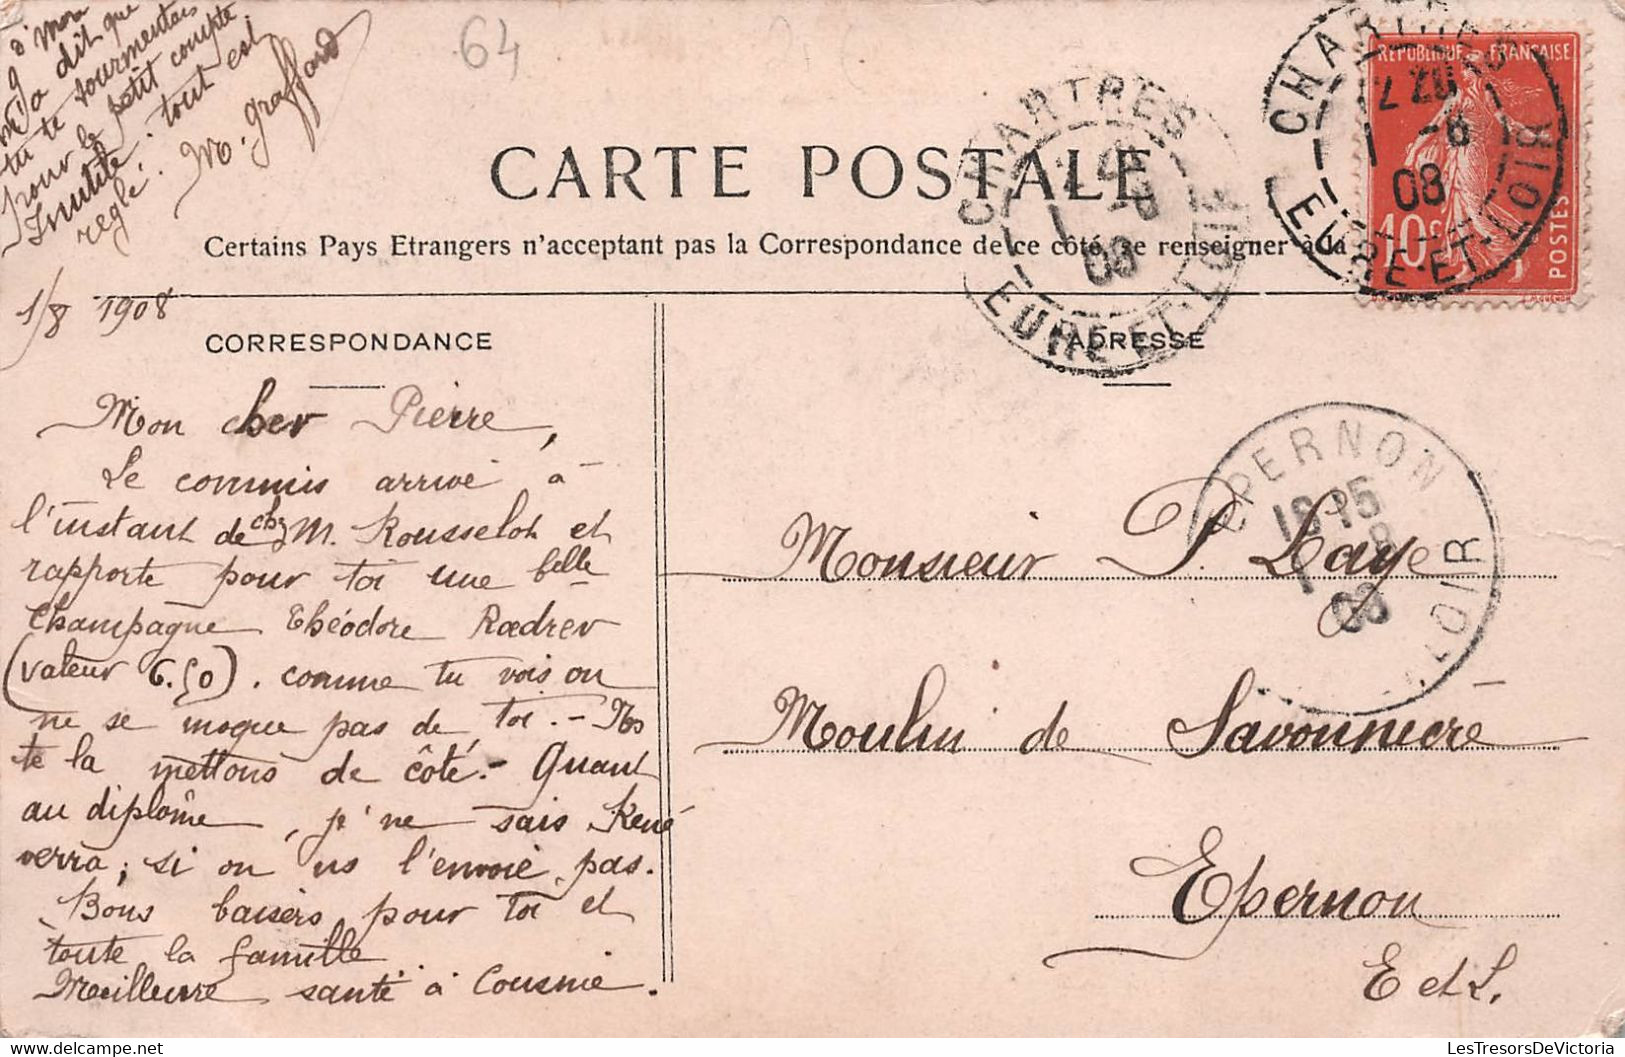 m'a dit que
tu te tourmentais
pour le petit compte
Inutile. tout est
reglé.
M. Graffard
64
CARTE POSTALE
Certains Pays Etrangers n'acceptant pas la Correspondance de ce côté, se renseigner à la
CHARTRES
08
EURE-ET-LOIR
CHARTRES
7 20
1 -8
08
EURE-ET-LOIR
REPUBLIQUE FRANÇAISE
10c
POSTES
1/8 1908
CORRESPONDANCE
Mon cher Pierre,
Le commis arrive à
l'instant de chz M. Rousselot et
rapporte pour toi une belle
Champagne Théodore Rœdrer
(valeur 6.50). comme tu vois on
ne se moque pas de toi. - Ns
te la mettons de côté. - Quant
au diplôme, je ne sais, René
verra, si on ns l'envoie pas.
Bons baisers pour toi et
toute la famille
Meilleure santé à Cousine.
ADRESSE
EPERNON
18 15
1 -8
08
LOIR
Monsieur P. Laye
Moulin de Savonnière
Epernon
E et L.
LesTresorsDeVictoria